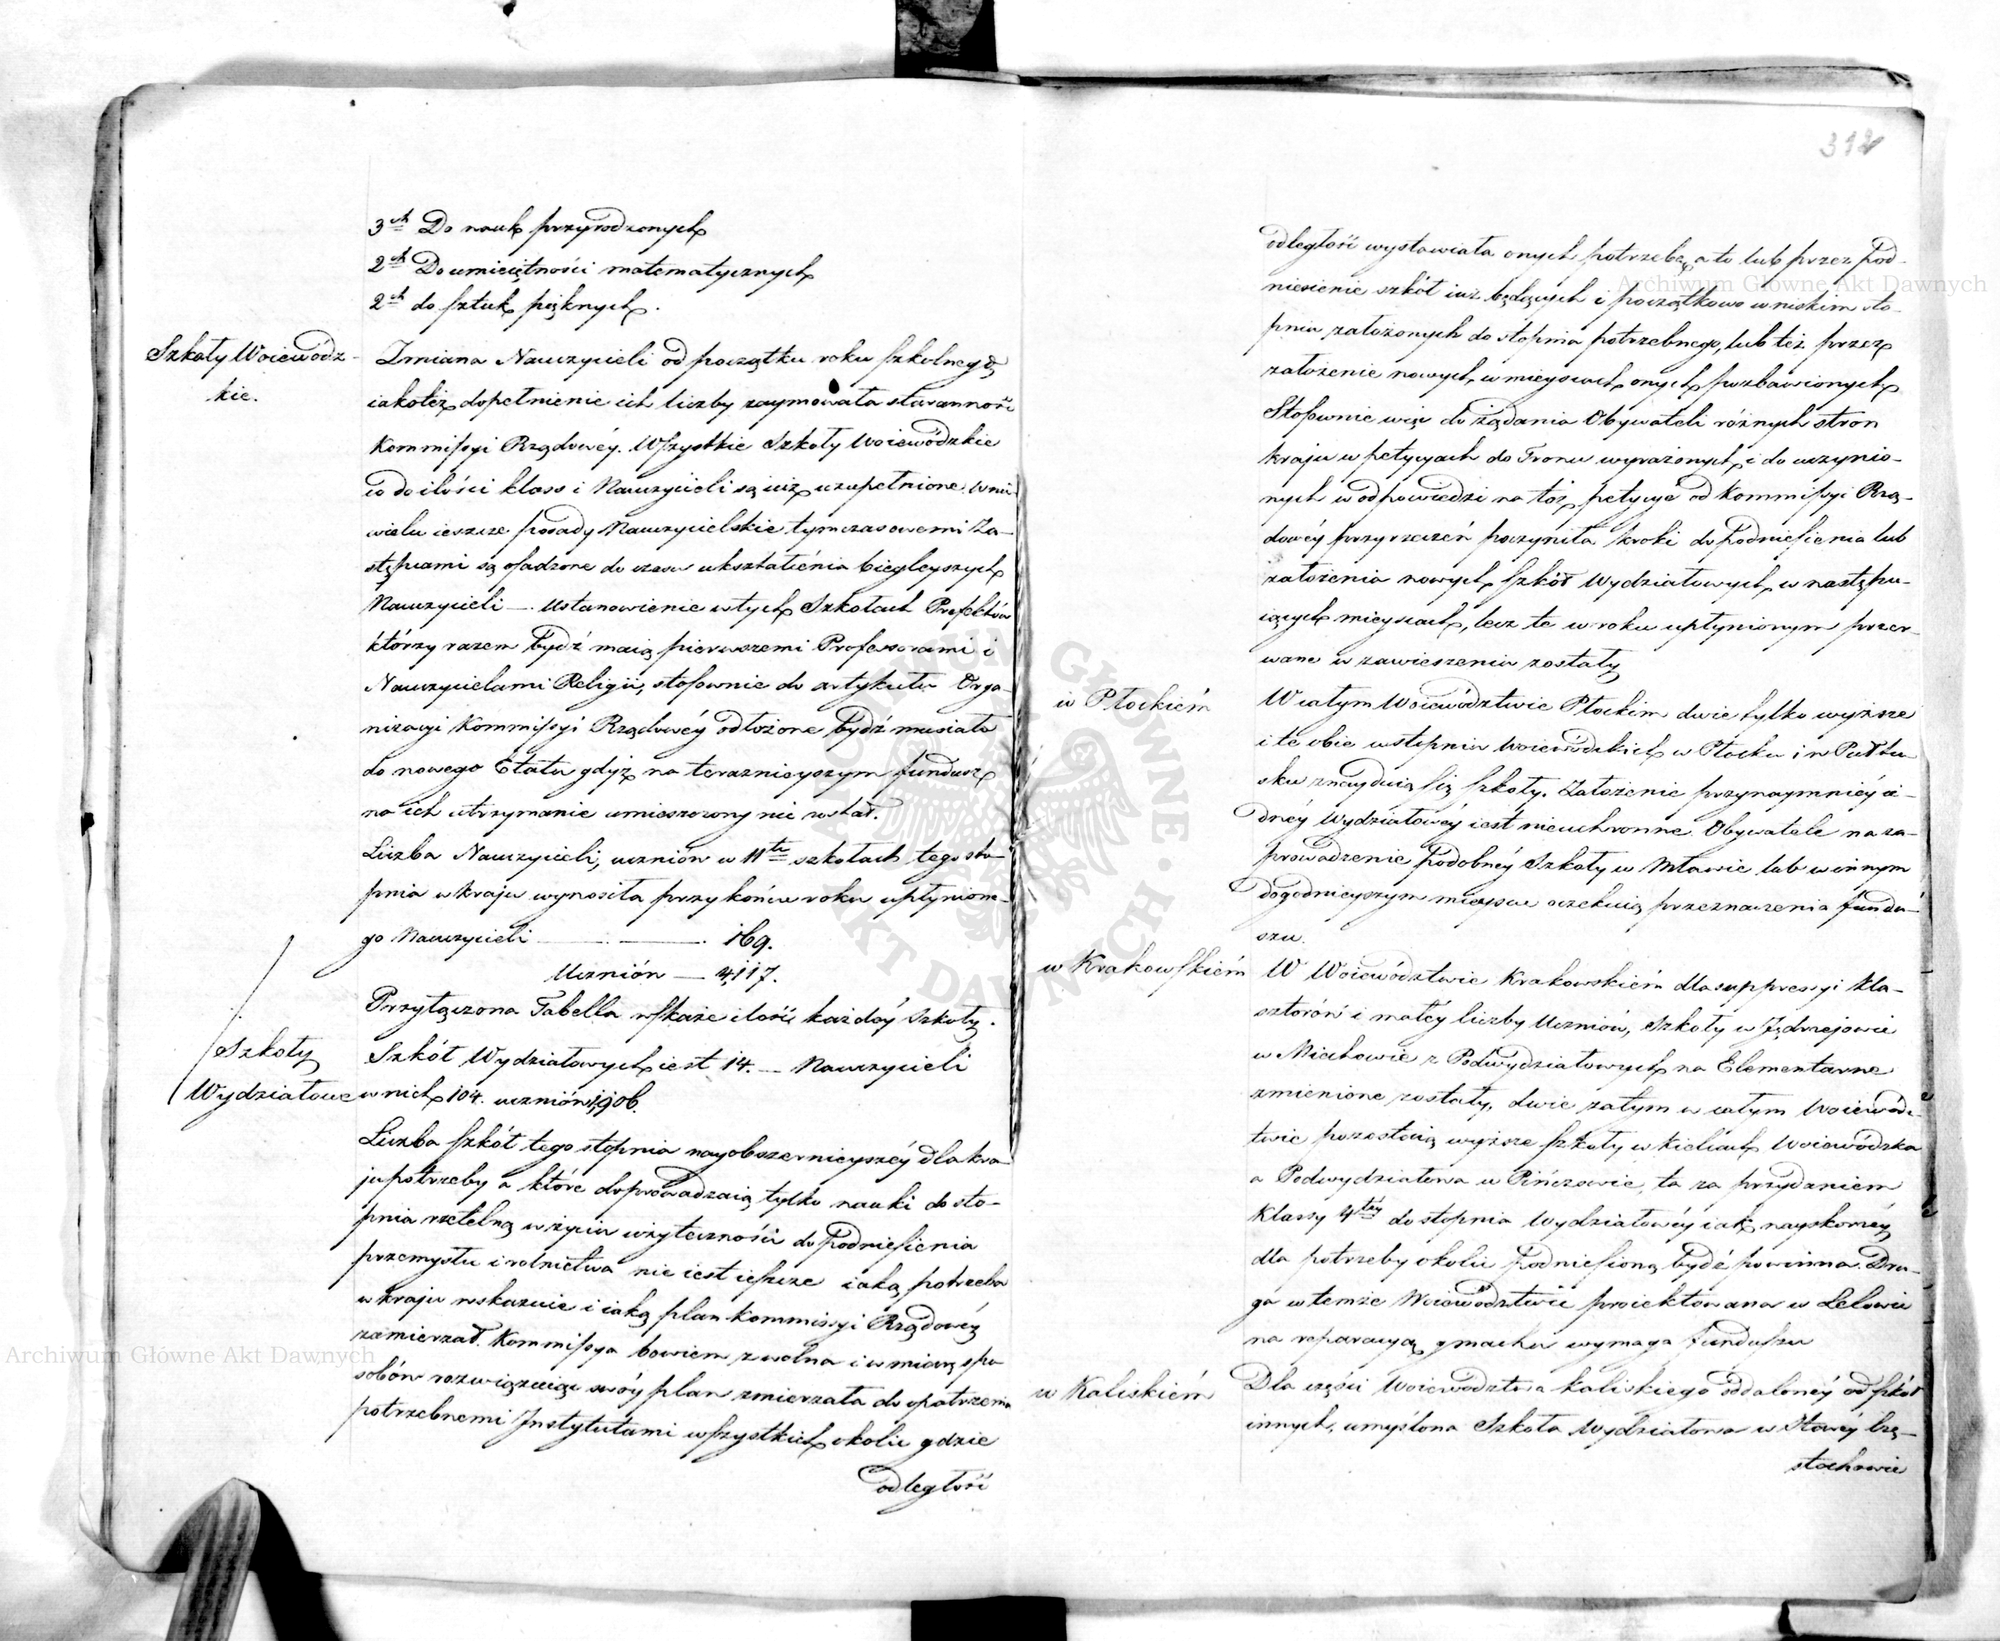 3ch Do nauk przyrodzonych
2ch Do umieiętności matematycznych
2ch do sztuk pięknych.
Szkoły Woiewódz-
kie.
Zmiana Nauczycieli od początku roku szkolnego,
iakoteż dopełnienie ich liczby zaymowała staranność
Kommissyi Rządowéy. Wszystkie Szkoły Woiewódzkie
co do ilości klass i Nauczycieli są iuż uzupełnione. W nie
wielu ieszcze posady Nauczycielskie tymczasowemi Za-
stępcami są osadzone do czasu ukształcenia biegleyszych
Nauczycieli — Ustanowienie w tych Szkołach Prefektów
którzy razem bydź maią pierwszemi Professorami i
Nauczycielami Religii, stosownie do artykułu Orga-
nizacyi Kommissyi Rządowéy odłożone bydź musiało
do nowego Etatu gdyż na teraznieyszym fundusz
na ich utrzymanie umieszczony nie został.
Liczba Nauczycieli, uczniów w 11tu szkołach tego sto-
pnia w kraju wynosiła przy końcu roku upłynione-
go Nauczycieli — — 169.
Uczniów — 4,117.
Przyłączona Tabella wskaże ilość każdéy Szkoły.
Szkoły
Wydziałowe
Szkół Wydziałowych iest 14. — Nauczycieli
w nich 104. uczniów 1,906.
Liczba szkół tego stopnia nayobszernieyszéy dla kra-
ju potrzeby a które doprowadzaią tylko nauki do sto-
pnia rzetelną w życiu użyteczności do podniesienia
przemysłu i rolnictwa nie iest ieszcze iaką potrzeba
w kraju wskazuie i iaką plan Kommissyi Rządowéy
zamierzał. Kommissya bowiem zwolna i w miarę spo
sobów rozwiązuiąc swóy plan zmierzała do opatrzenia
potrzebnemi Instytutami wszystkich okolic gdzie
odległość
312
odległość wystawiała onych potrzebę, a to lub przez pod-
niesienie szkół iuż będących i początkowo w niskim sto-
pniu założonych do stopnia potrzebnego, lub też przez
założenie nowych w mieyscach onych pozbawionych.
Stosownie więc do żądania Obywateli różnych stron
kraju w petycyach do Tronu wyrażonych i do uczynio-
nych w odpowiedzi na też petycye od Kommissyi Rzą-
dowéy przyrzeczeń poczyniła kroki do podniesienia lub
założenia nowych szkół Wydziałowych w następu-
iących mieyscach, lecz te w roku upłynionym przer-
wane w zawieszeniu zostały
w Płockiém
W całym Woiewództwie Płockim dwie tylko wyższe
i te obie w stopniu Woiewódzkich w Płocku i w Pułtu-
sku znayduią się szkoły. Założenie przynaymniéy ie-
dnéy Wydziałowéy iest nieuchronne. Obywatele na za-
prowadzenie podobnéy Szkoły w Mławie lub w innym
dogodnieyszym mieyscu oczekuią przeznaczenia fundu-
szu.
w Krakowskiém
W Woiewództwie Krakowskiém dla suppressyi kla-
sztorów i małéy liczby Uczniów, szkoły w Jędrzejowie
w Miechowie z Podwydziałowych na Elementarne
zmienione zostały, dwie zatym w całym Woiewódz-
twie pozostaią wyższe szkoły w Kielcach Woiewódzka
a Podwydziałowa w Pińczowie, ta za przydaniem
Klassy 4téy do stopnia Wydziałowéy iak nayskoréy
dla potrzeby okolic podniesioną bydź powinna. Dru-
ga w temże Woiewództwie proiektowana w Lelowie
na reparacyą gmachu wymaga funduszu
w Kaliskiém
Dla części Woiewództwa kaliskiego oddalonéy od szkół
innych, umyślona Szkoła Wydziałowa w Nowéy Czę-
stochowie
Archiwum Główne Akt Dawnych
Archiwum Główne Akt Dawnych
ARCHIWUM GŁÓWNE AKT DAWNYCH